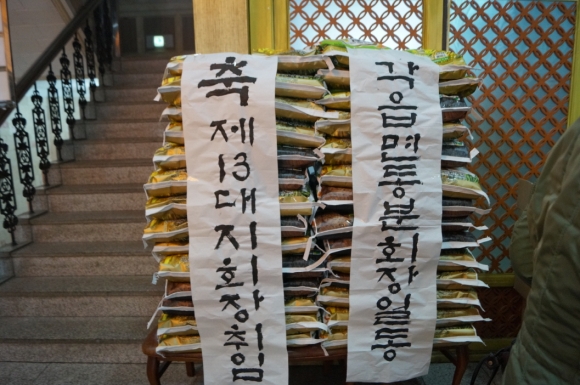 축 제13대 지회장 취임
각 읍면동 분회장 일동